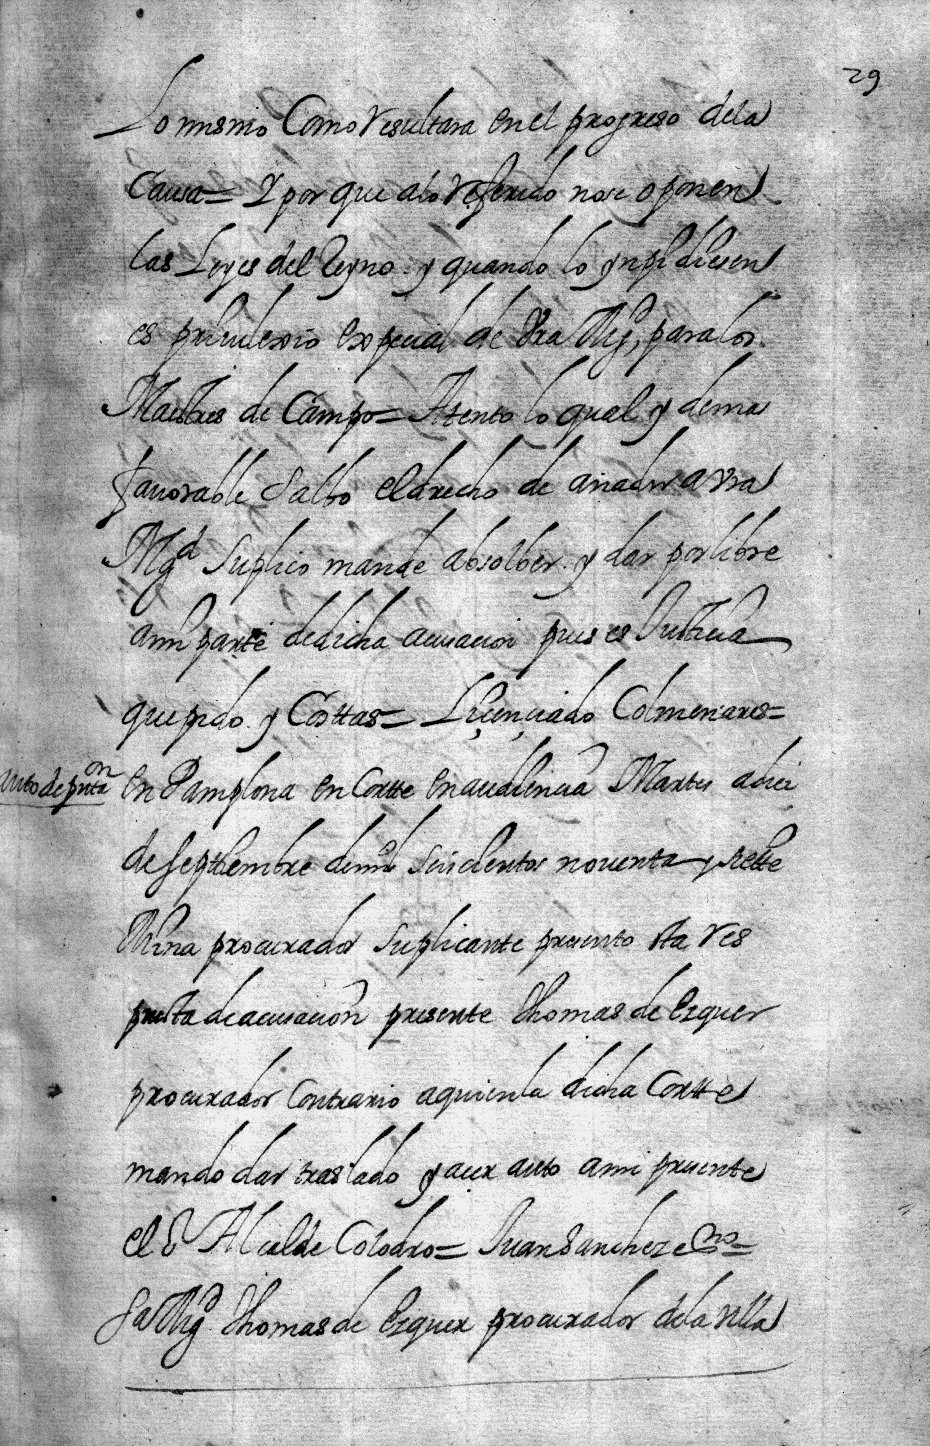 29
Lo mismo Como Resultara en el progreso dela
Causa= Y por que alo Referido no se oponen
las Leyes del Reyno. y quando lo ynpidiesen
es priuilexio expecial de Vra Mgd, para los
Maestres de Campo= Atento lo qual y demas
fauorable Salbo el drecho de añadir a Vra
Mgd Suplico mande absolber. y dar por libre
ami parte de dicha acusacion pues es Justicia
que pido. y Costtas= Liçençiado Colmenares=
Auto de pntaon
en Pamplona en Cortte en audiencia Martes a diez
de septtiembre de mil seiscientos nouenta y siette
Mina procurador Suplicante presento sta Res
puesta de acusacion presente Thomas de Ezquer
procurador Contrario a quien la dicha Cortte
mando dar traslado y acer auto ami presente
el S Alcalde Colodro= Juan Sanchez esno=
Sa Mgd Thomas de Ezquer procurador dela villa